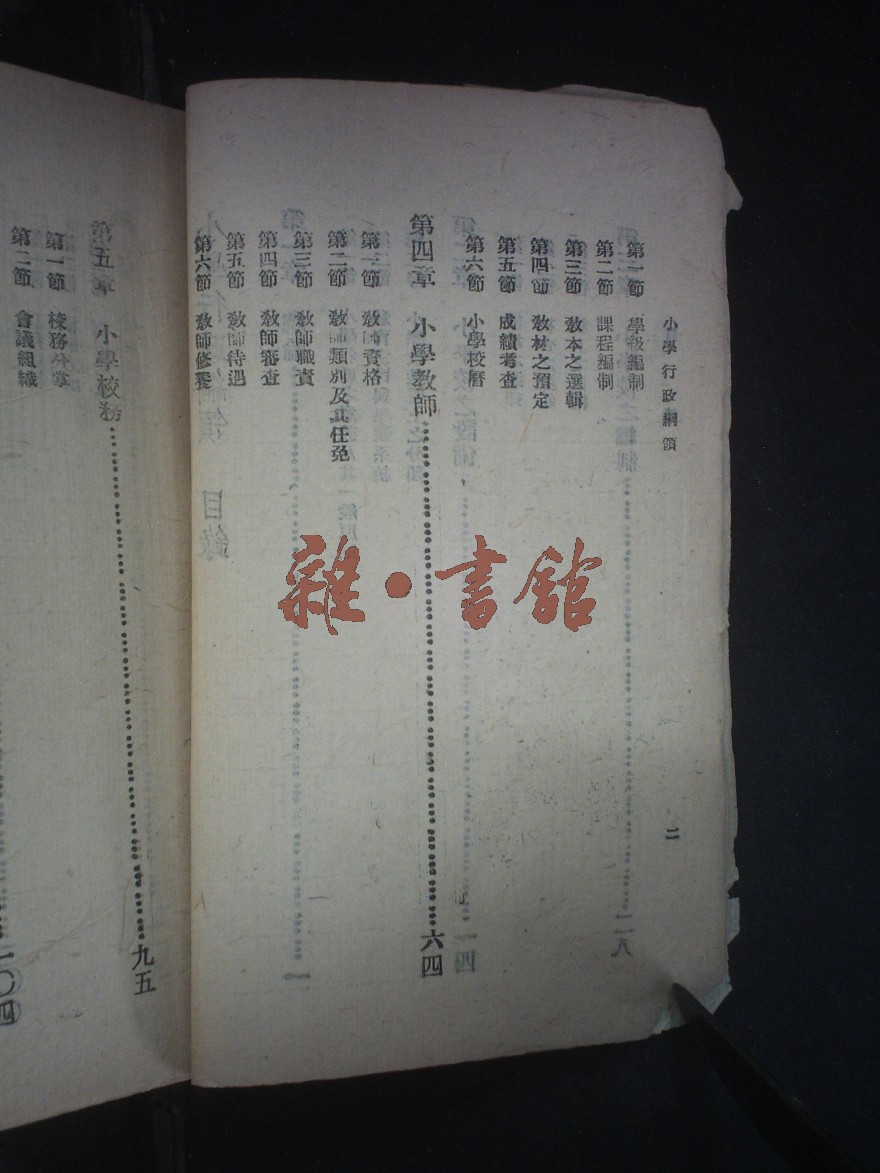 小學行政綱領
二
第一節 學級編制
第二節 課程編制
第三節 敎本之選輯
第四節 敎材之預定
第五節 成績考查
第六節 小學校曆
第四章 小學敎師……六四
第一節 敎師資格
第二節 敎師類別及其任免
第三節 敎師職責
第四節 敎師審查
第五節 敎師待遇
第六節 敎師修養
第五章 小學校務……九五
第一節 校務分掌
第二節 會議組織
一〇四
雜·書館